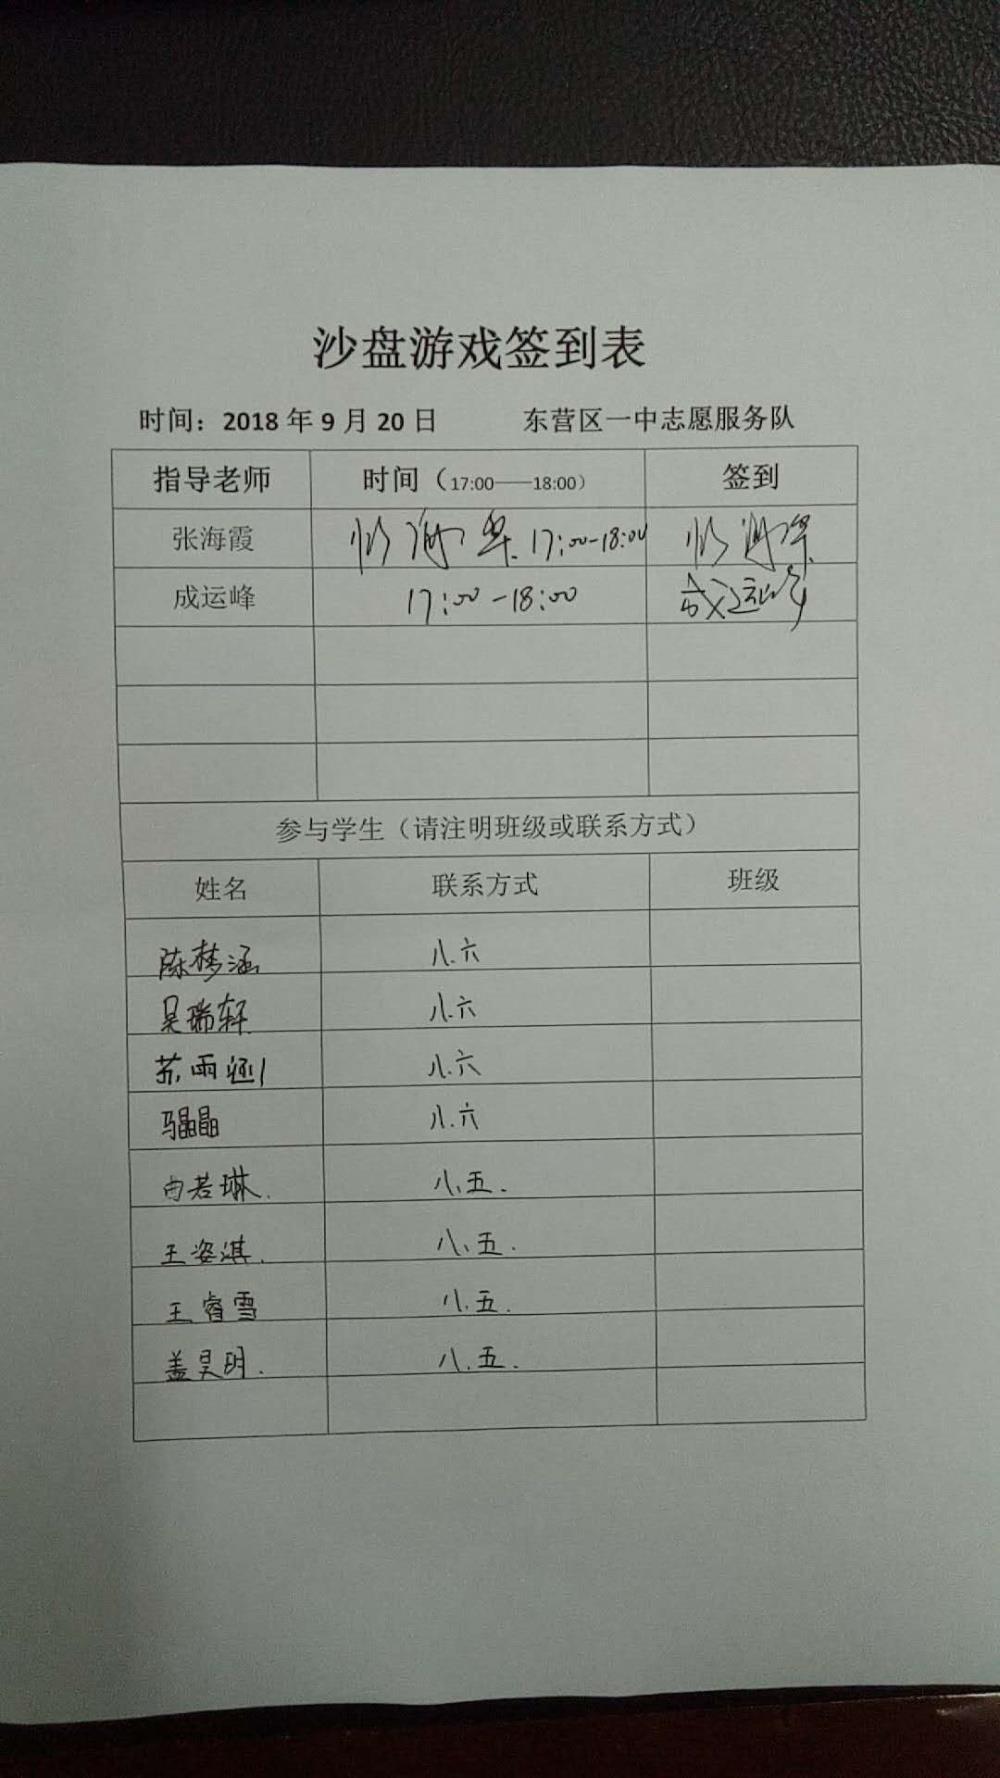 沙盘游戏签到表
时间：2018 年 9 月 20 日 东营区一中志愿服务队
指导老师 时间（17:00——18:00） 签到
张海霞 张海霞 17:00-18:00 张海霞
成运峰 17:00-18:00 成运峰
参与学生（请注明班级或联系方式）
姓名 联系方式 班级
陈梦涵 八.六
吴瑞轩 八.六
苏雨 八.六
马晶晶 八.六
由若琳. 八.五.
王姿淇. 八.五.
王睿雪 八.五.
盖昊明. 八.五.